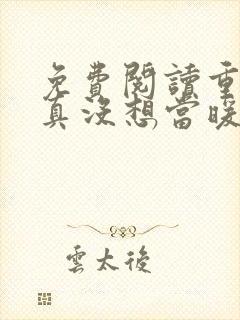 免費閱讀重
真没想當暖
雲太後